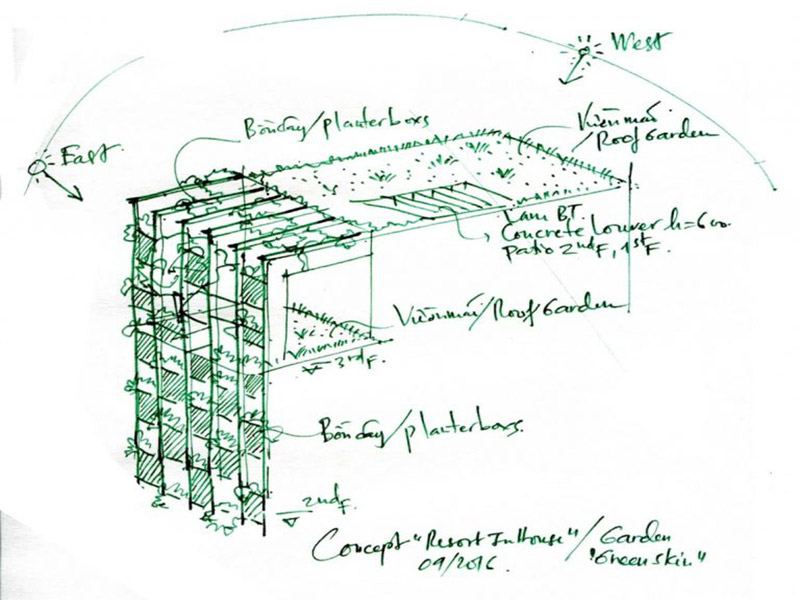 West
East
Bồn cây/planterboxs
Vườn mái
/Roof Garden
Lam BT.
Concrete Louver h=600.
Patio 2ndF, 1stF.
Vườn mái/Roof Garden
3rdF.
Bồn cây/planterboxs.
2ndF.
Concept "Resort In House"/Garden
09/2016. "Green skin"